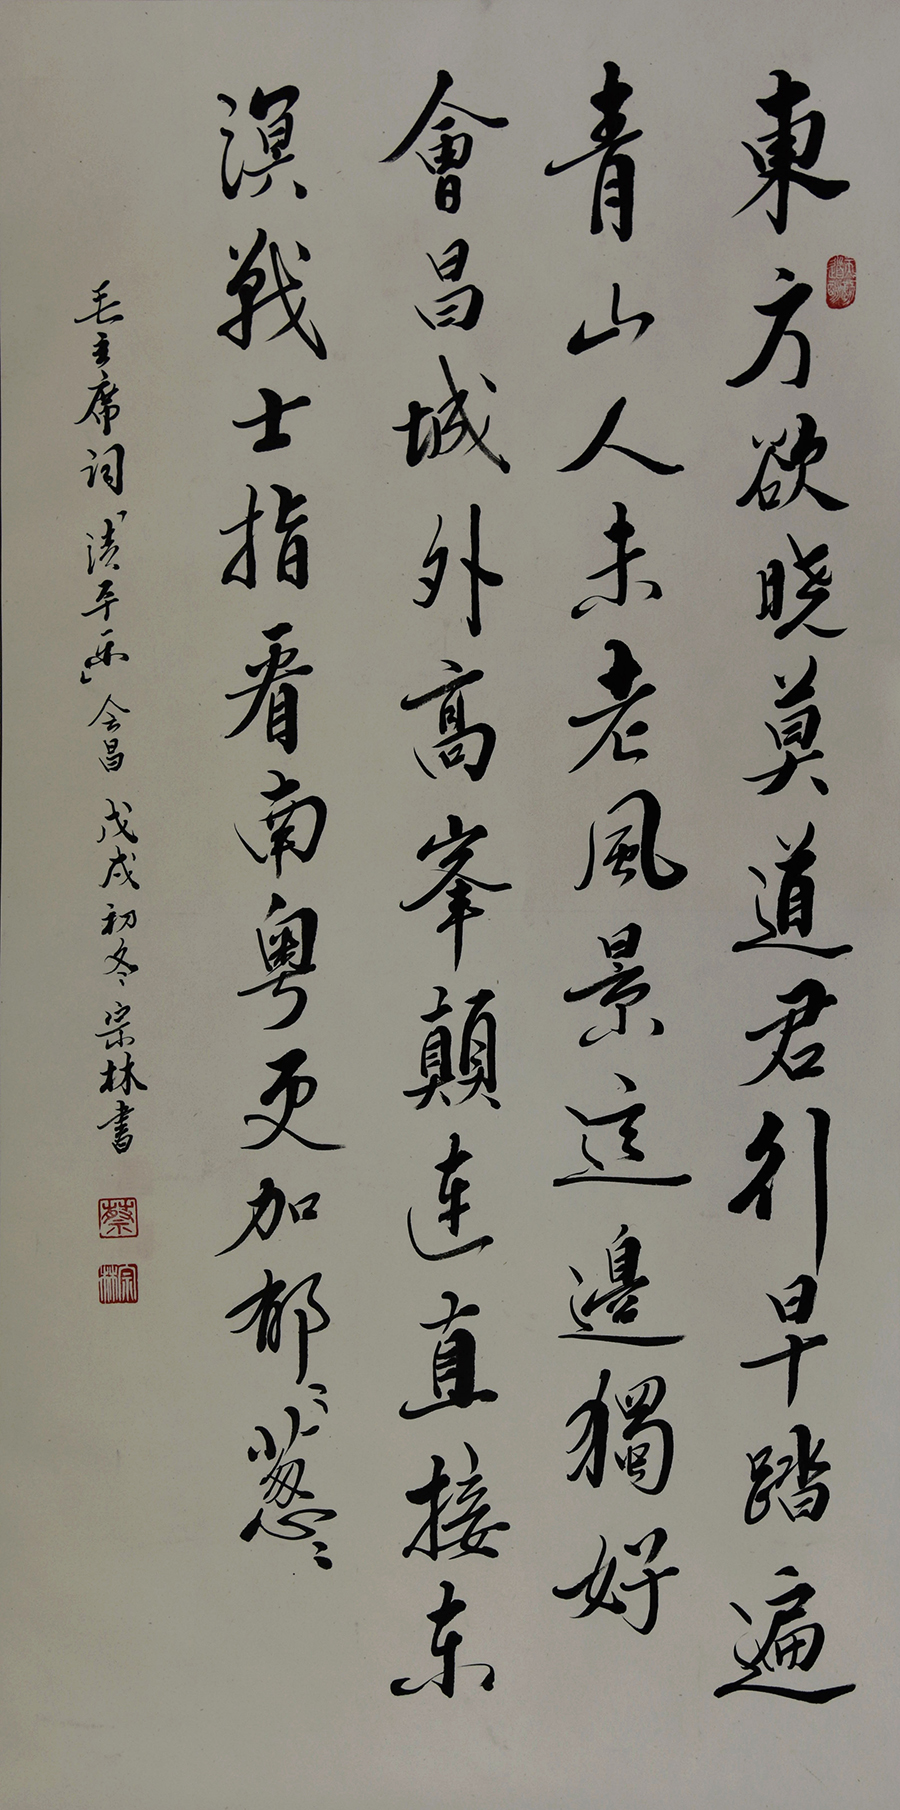 東方欲晓莫道君行早踏遍
青山人未老風景這邊獨好
會昌城外高峯顛連直接东
溟戰士指看南粤更加郁〻葱〻
毛主席词「清平乐」会昌 戊戌初冬 宗林书
蔡
宗林